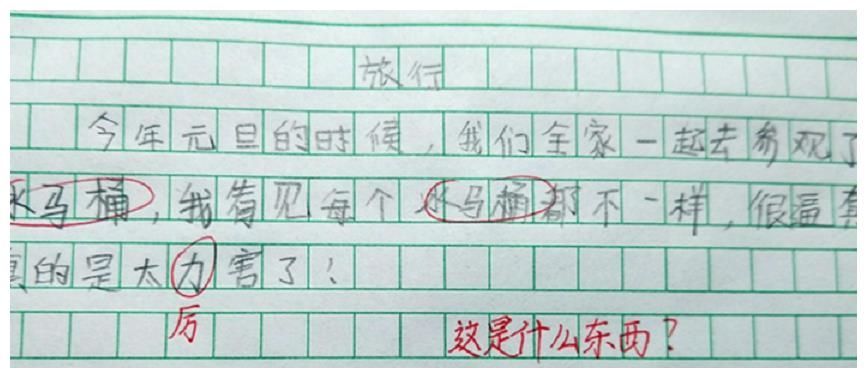 旅行
今年元旦的时候，我们全家一起去参观了
水马桶，我看见每个水马桶都不一样，很逼真
真的是太力害了！
厉
这是什么东西？